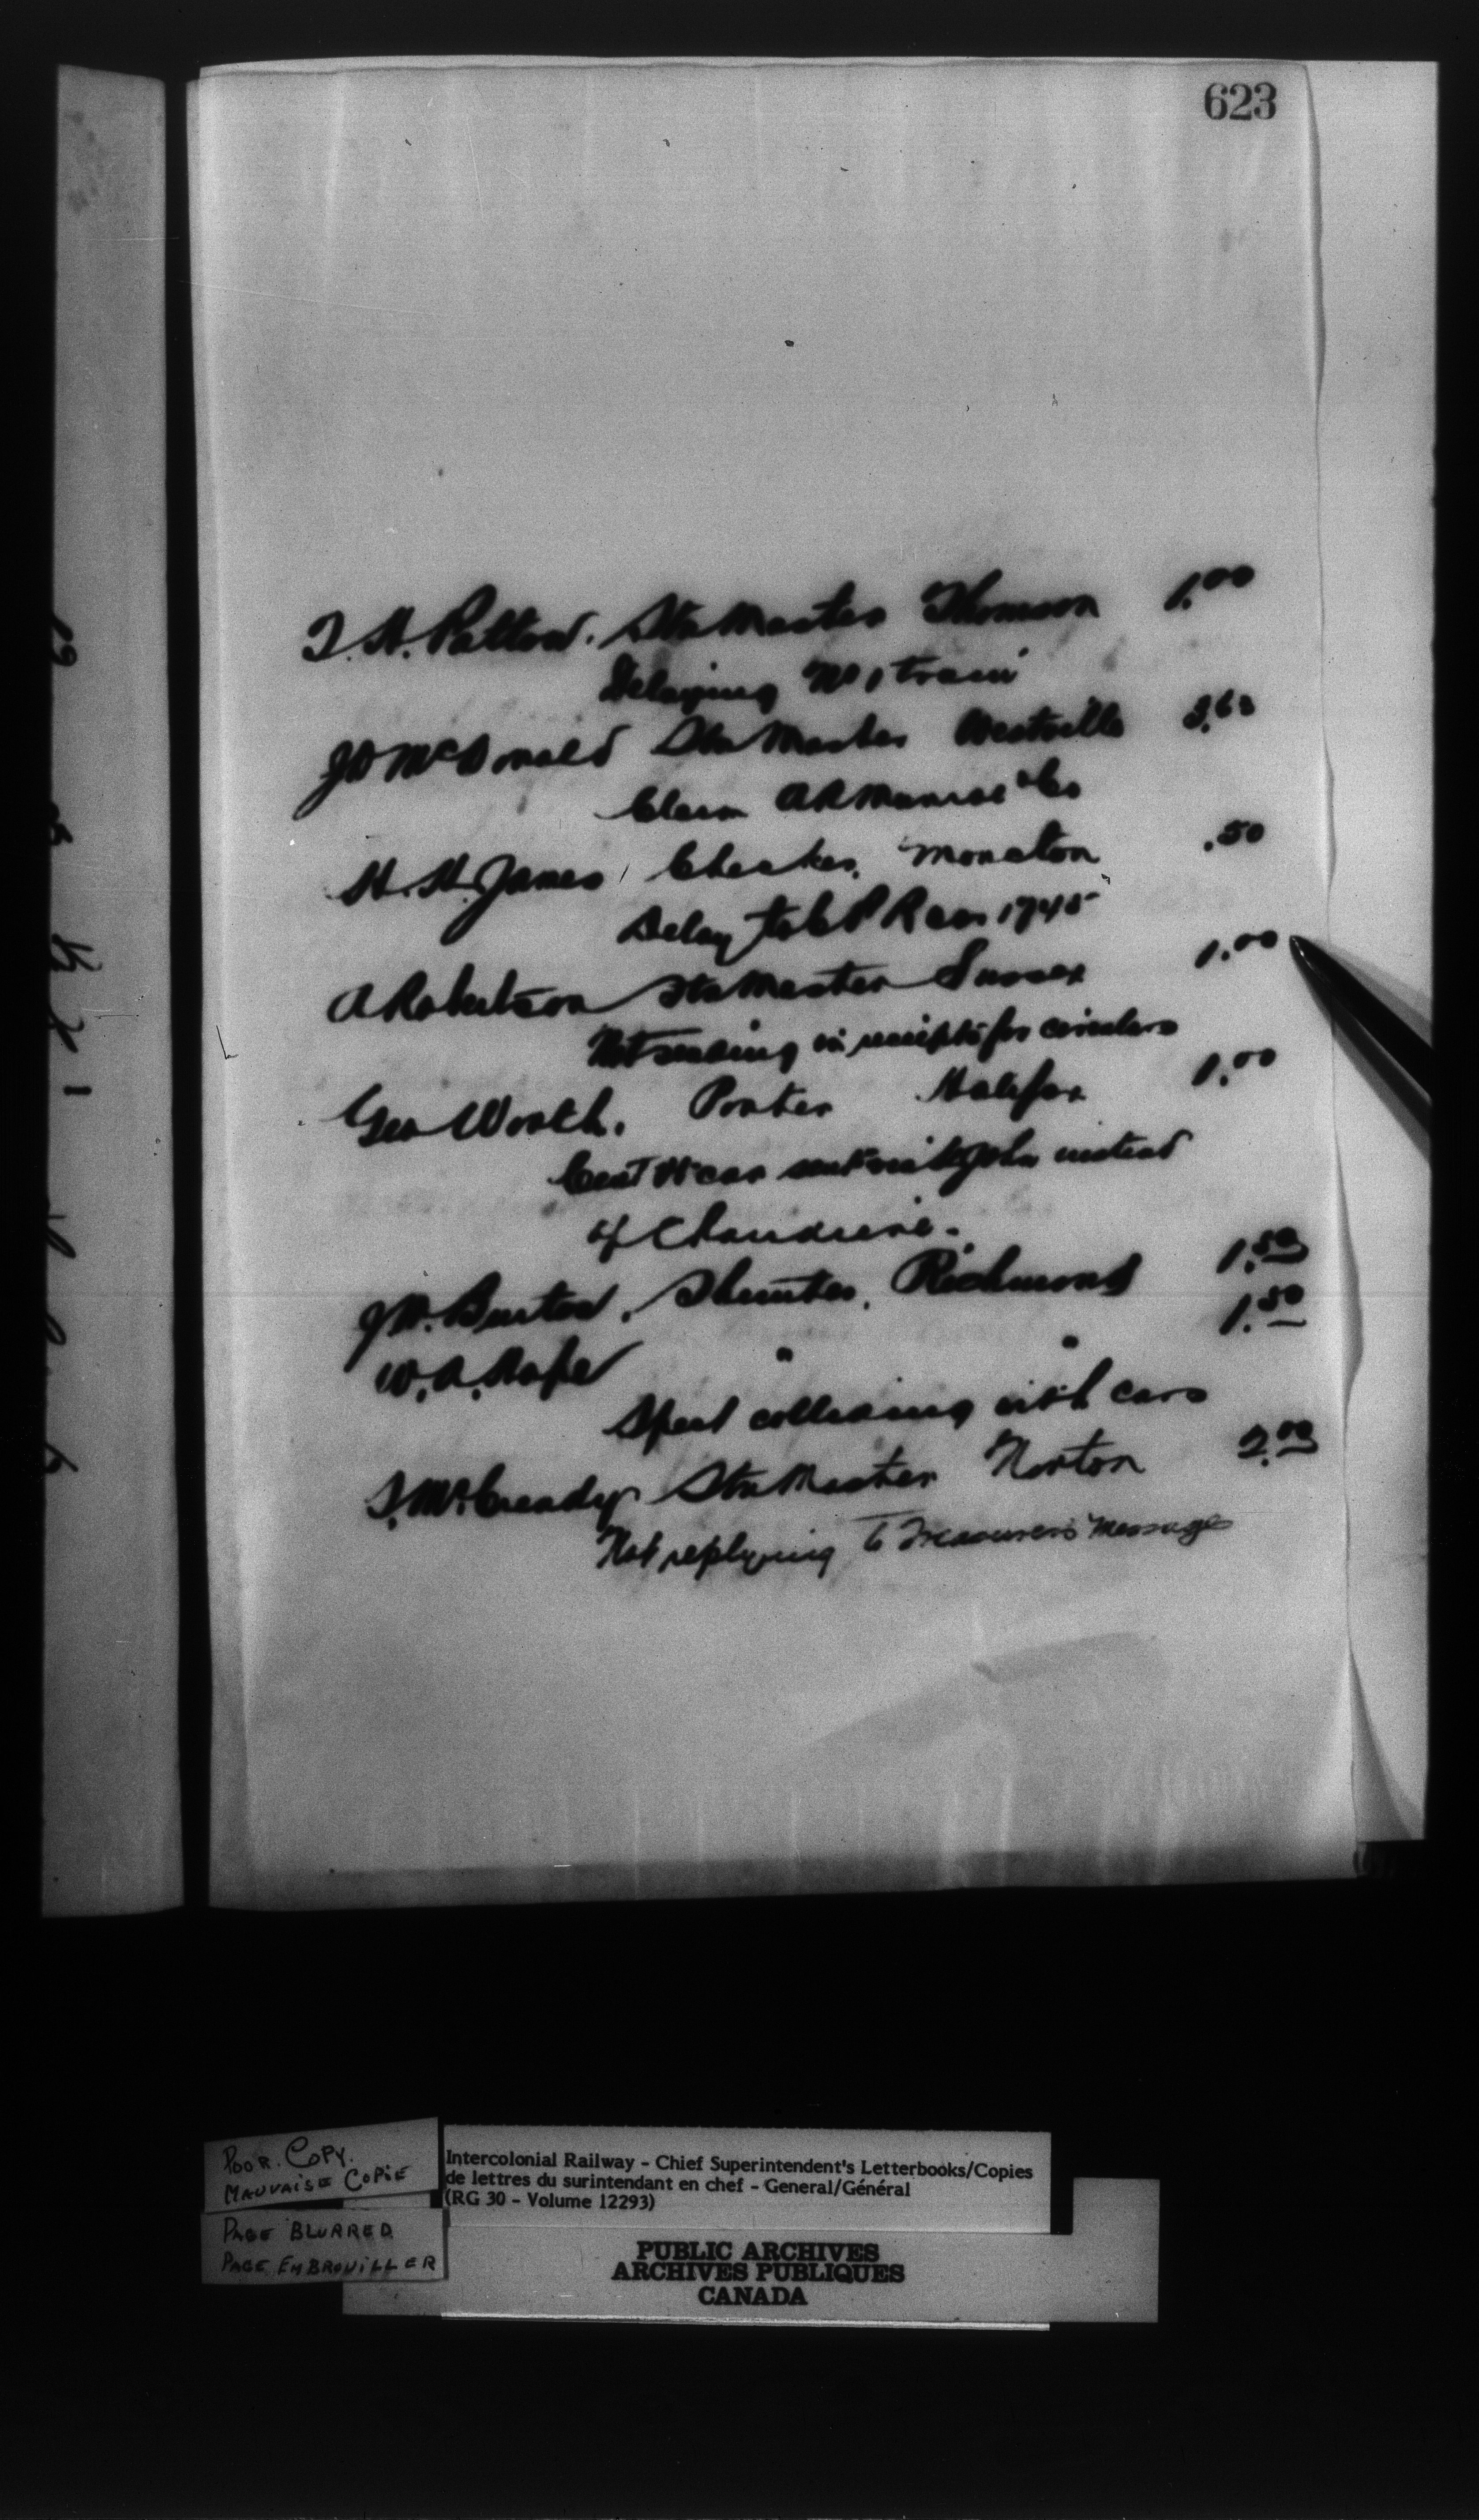 623
T. H. Patton. Sta Master Thomson 1.00
Delaying No 1 train
J D McDonald Sta Master Westville 3.63
Claim A R Munroe & Co
H. H. James, Checker, Moncton .50
Delay to C P R car 1745
A Robertson Sta Master Sussex 1.00
Not sending in receipts for circulars
Geo Worth. Porter Halifax 1.00
car sent via St John instead
of Chaudiere.
J W. Burton, Shunter, Richmond 1.50
W. A. " " 1.50
Spect colliding with cars
S. McCready Sta Master Norton 2.00
Not replying to Treasurers Messages
POOR. COPY.
MAUVAISE COPIE
PAGE BLURRED
PAGE EMBROUILLER
Intercolonial Railway - Chief Superintendent's Letterbooks/Copies
de lettres du surintendant en chef - General/Général
(RG 30 - Volume 12293)
PUBLIC ARCHIVES
ARCHIVES PUBLIQUES
CANADA